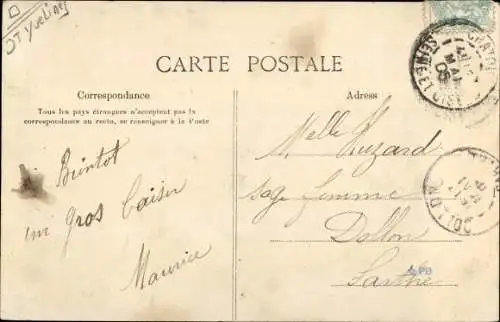 D
St Yvelines
CARTE POSTALE
Correspondance
Tous les pays étrangers n'acceptent pas la
correspondance au recto, se renseigner à la Poste
Adresse
Bientot
un gros baiser
Maurice
Melle Huzard
sage femme
Dollon
Sarthe
PB
DOLLON